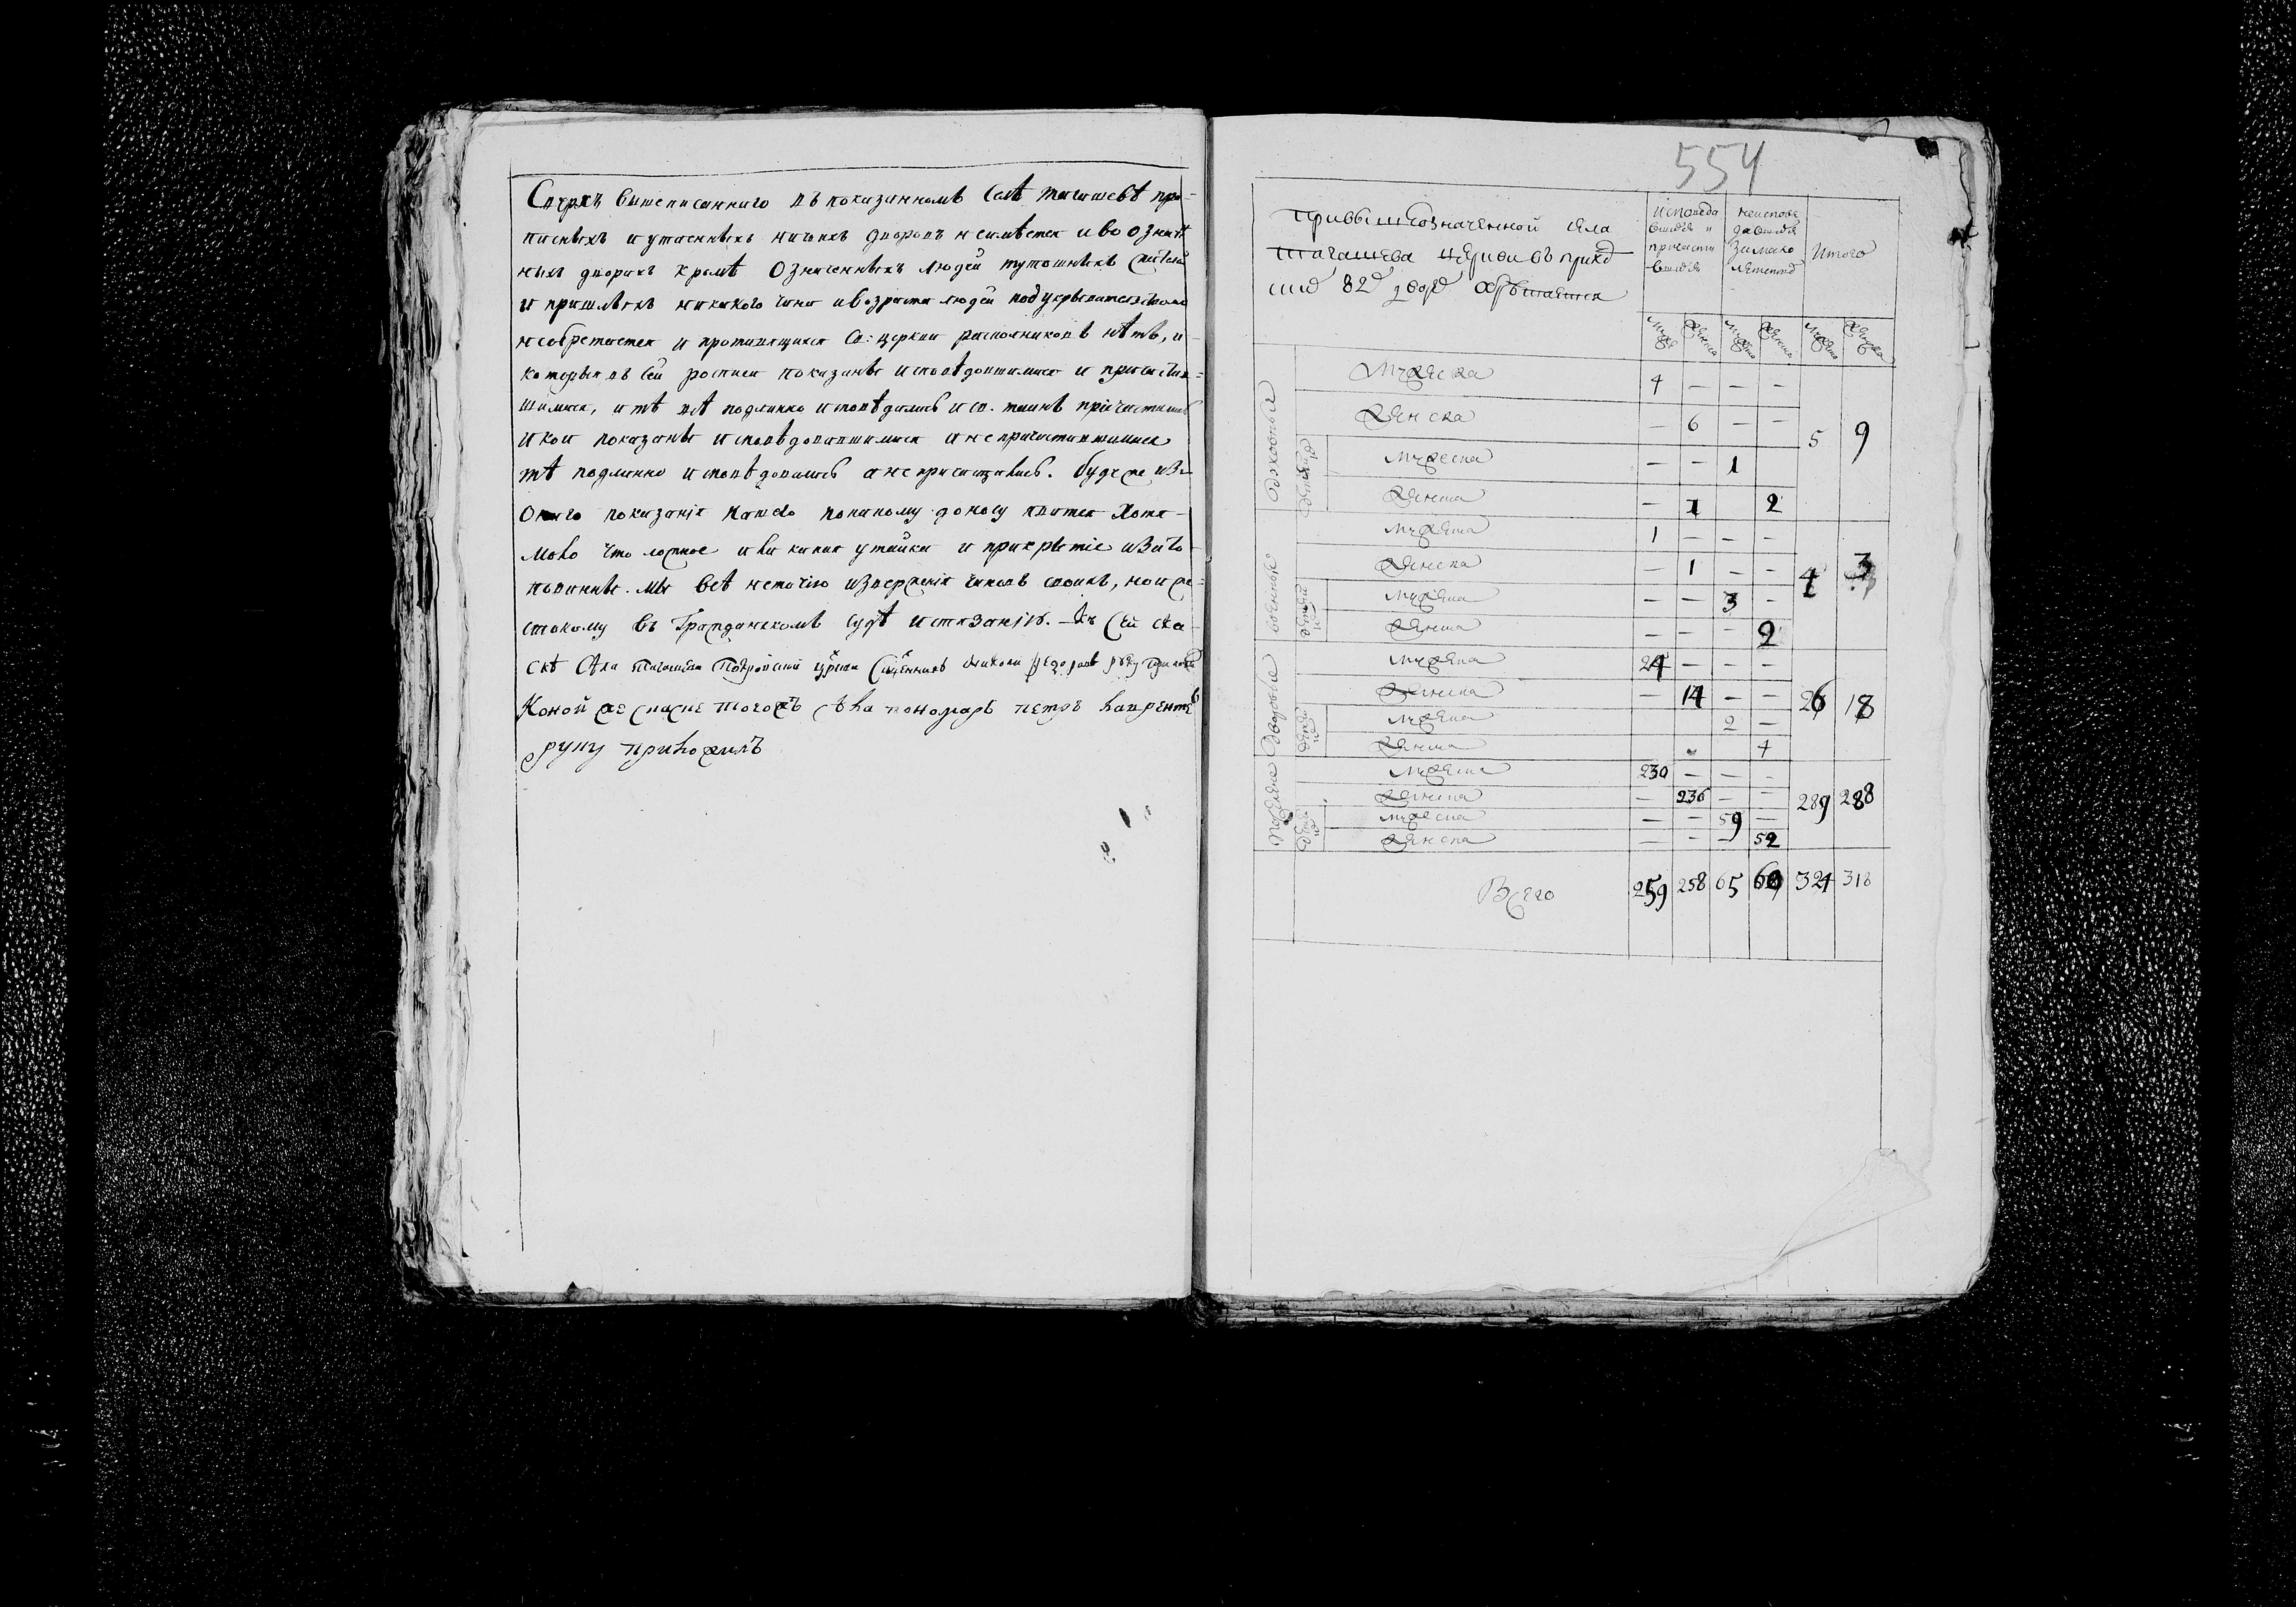 Сверхъ вышеписаннаго въ показанномъ селѣ тагашевѣ про-
писныхъ и утаенныхъ ничьихъ дворовъ неимѣется и во означѣ
ныхъ дворахъ кромѣ означенныхъ людей тутошнихъ
и пришлыхъ никакого чина и возраста людей под укрывателством
необретается и противящихся св: церкви раскольниковъ нѣтъ, и
которыя въ сей росписи показаны исповѣдовшимися и причастив-
шимися, и тѣ всѣ подлинно исповѣдались и св. таинъ причастились
и кои показаны исповѣдовавшимися а не причастившимися
тѣ подлинно исповѣдовались а не причащались. буде же из
онаго показанія нашего по какому доносу явится хотя
мало что ложное или какая утайка и прикрытіе и за то
повинны мы всѣ не точію изверженія чиновъ своихъ, но и же-
стокому въ Гражданскомъ судѣ истязанію. - Къ сей ска
скѣ села Покровской цркви Сщенникъ Федоровъ руку приложил
К оной же скаске того жъ села пономарь петръ лаврентев
руку приложилъ
554
при вышеозначенной села
тагашева церкви въ прихд
82 двор обретается
исповеда
вшихся и
причасти
вшихся
неиспове
давшихся
за мало
летством
Итого
мужс женска мужс женска мужска женска
Духовныя
мужеска 4 — — —
женска — 6 — — 5 9
мужеска — — 1
женска — 1 2
военныя
мужеска 1 — — —
женска — 1 — — 4 3
мужеска — — 3 —
женска — — — 2
Дворовые
мужеска 24 — — —
женска — 14 — — 26 18
мужеска 2 —
женска 4
Поселяне
мужеска 230 — — —
женска — 236 — — 289 288
мужеска — — 59 —
женска — — — 52
Всего 259 258 65 60 324 318